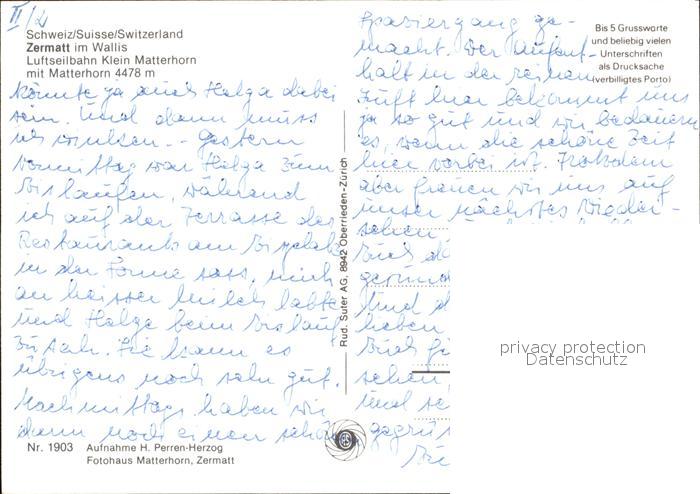 II/2
Schweiz/Suisse/Switzerland
Zermatt im Wallis
Luftseilbahn Klein Matterhorn
mit Matterhorn 4478 m
könnte ja auch Helga dabei
sein. Und dann muss
ich winken. - Gestern
Vormittag war Helga zum
Eislaufen, während
ich auf der Terrasse des
Restaurants am Eisplatz
in der Sonne sass, mich
an heisser Milch labte
und Helga beim Eislauf
zusah. Sie kann es
übrigens noch sehr gut.
Nachmittags haben wir
dann noch einen schönen
Nr. 1903 Aufnahme H. Perren-Herzog
Fotohaus Matterhorn, Zermatt
Rud. Suter AG, 8942 Oberrieden-Zürich
Spaziergang ge-
macht. Der Aufent-
halt in der reinen
Luft hier bekommt uns
ja so gut und wir bedauern
es, wenn die schöne Zeit
hier vorbei ist. Trotzdem
aber freuen wir uns auf
unser nächstes Wieder-
sehen
Euch
Und
lieben
Euch
sehen
Und
gegrüs
Bis 5 Grussworte
und beliebig vielen
Unterschriften
als Drucksache
(verbilligtes Porto)
privacy protection
Datenschutz